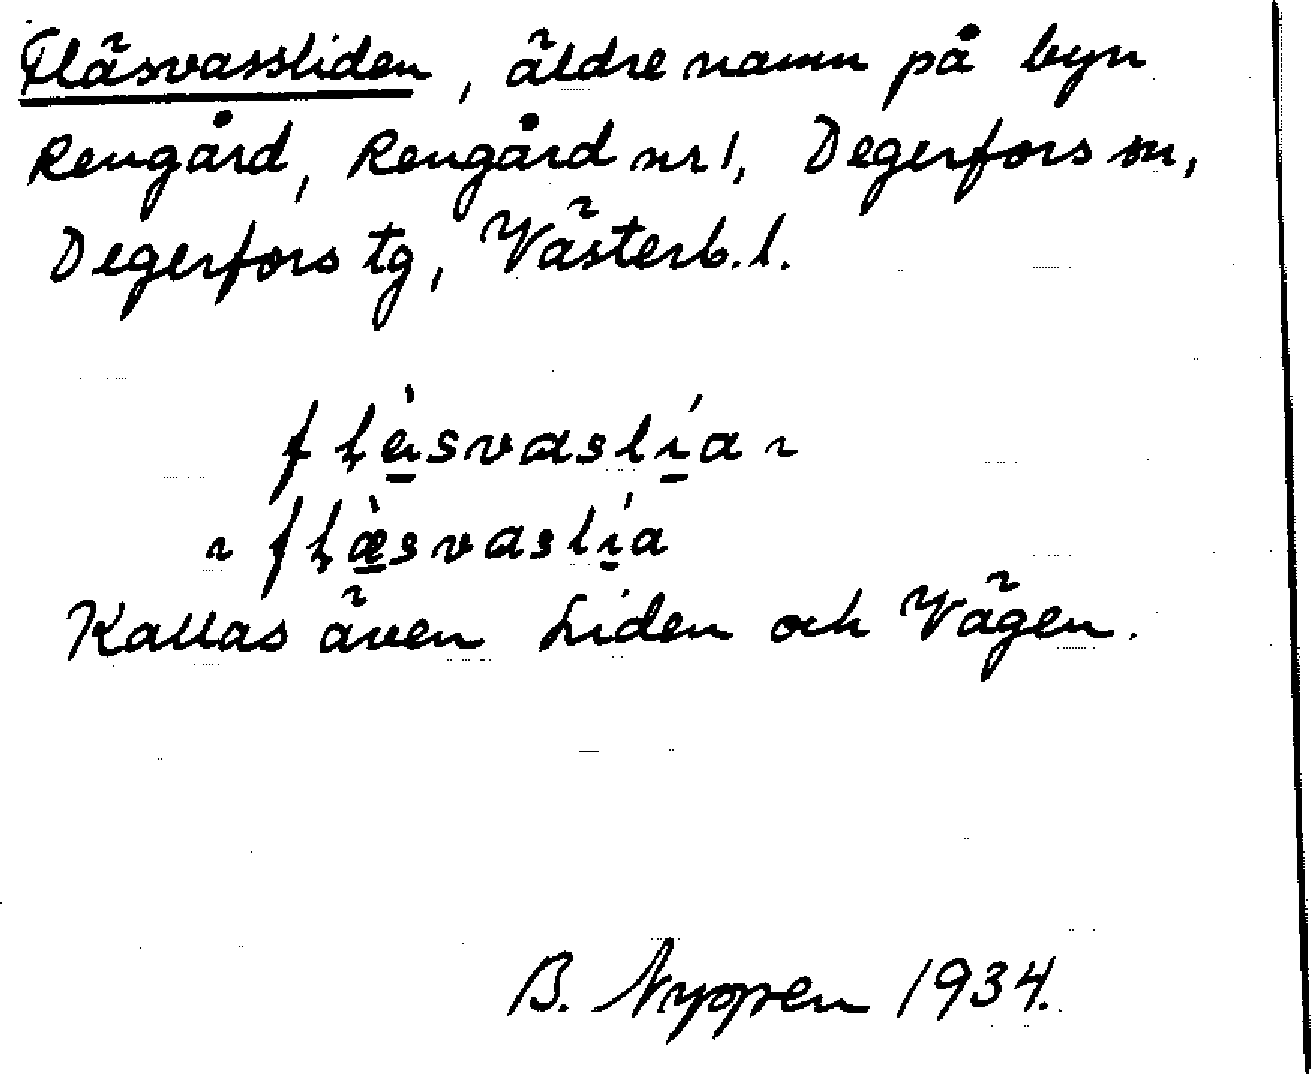 Fläsvassliden, äldre namn på byn
Rengård, Rengård nr 1, Degerfors sn,
Degerfors tg, Västerb. l.
fḷ̀a̲svaslí̲a ~
~ fḷæ̲̀svaslí̲a
Kallas även Liden och Vägen.
B. Nyppen 1934.